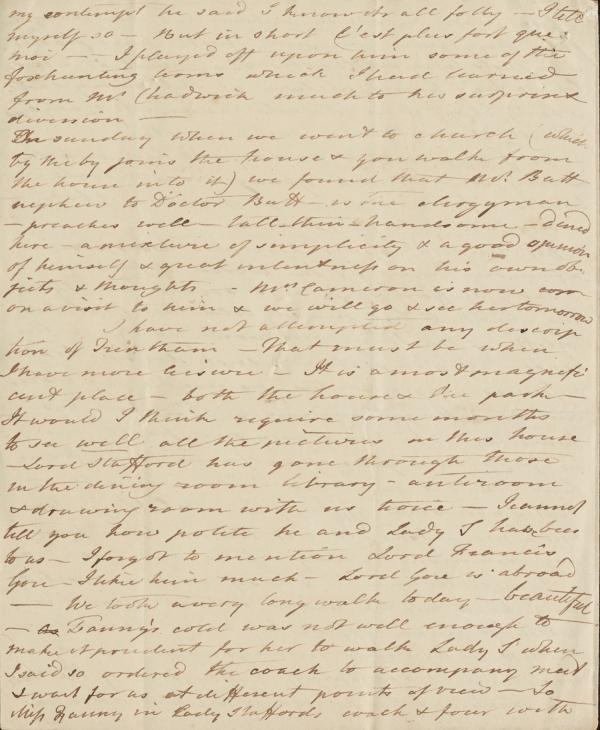 my contempt he said I know it's all folly — I tell
myself so — But in short C'est plus fort que
moi — I played off upon him some of the
foxhunting terms which I had learned
from Mr. Chadwick much to his surprise &
division —
On sunday when we went to church (which
by the by joins the house & you walk from
the house into it) we found that Mr. Butt
nephew to Doctor Butt — is the clergyman
— preaches well — tall thin handsome — dined
here — a mixture of simplicity & a good opinion
of himself & great intentness on his own ob
jects & thoughts — Mrs Cameron is now
on a visit to him & we will go & see her tomorrow
I have not attempted any descrip
tion of Trentham — That must be when
I have more leisure — It is a most magnifi
cent place — both the house & the park —
It would I think require some months
to see well all the pictures in this house
— Lord Stafford has gone through those
in the dining room library — antiroom
& drawing room with us twice — I cannot
tell you how polite he and Lady S has been
to us — I forgot to mention Lord Francis
Gore — I like him much — Lord Gore is abroad
— We took a very long walk today — beautiful
— Fanny's cold was not well enough to
make it prudent for her to walk Lady S when
I said so ordered the coach to accompany
& wait for us at different points of view — So
Miss Fanny in Lady Staffords coach & four with